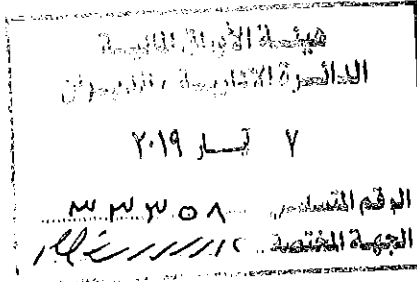 هيئة الأوراق المالية
الدائرة الإدارية / الديوان
٧ أيـار ٢٠١٩
الرقم المتسلسل ٣٣٣٥٨
الجهة المختصة